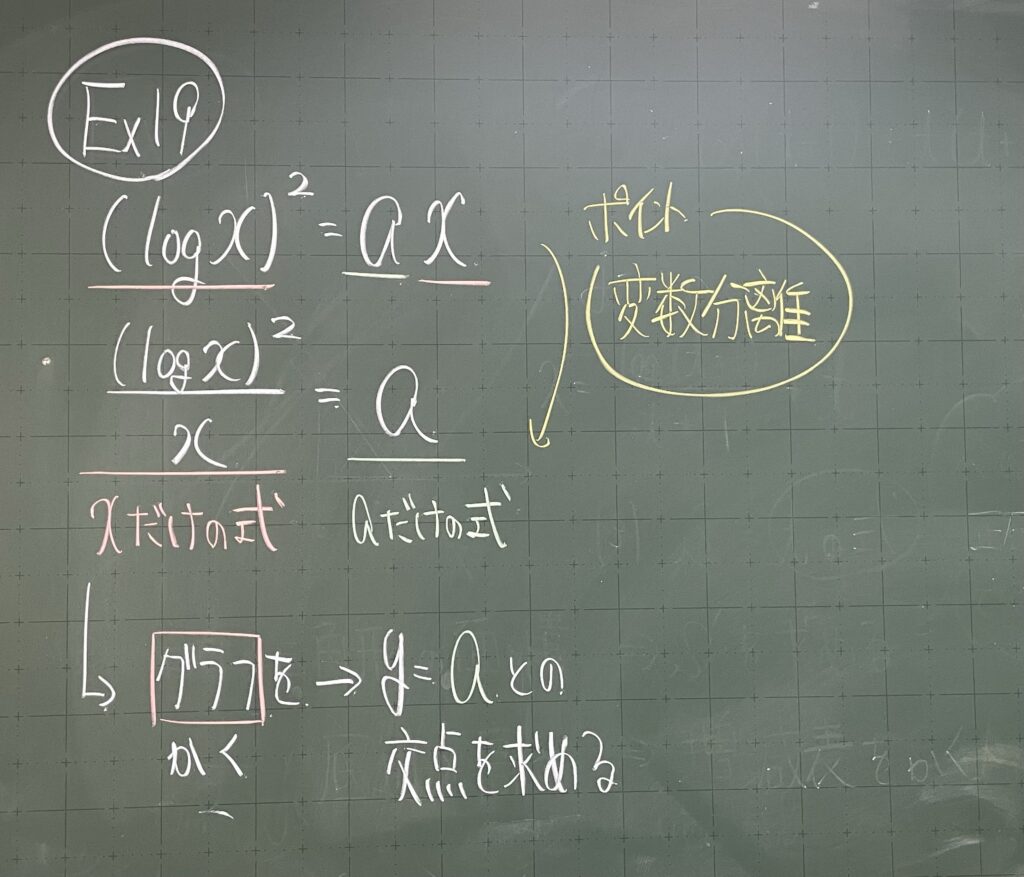 Ex19
(log x)² = a x
ポイント
変数分離
(log x)²/x = a
xだけの式 aだけの式
↳ グラフを → y = a との
かく 交点を求める